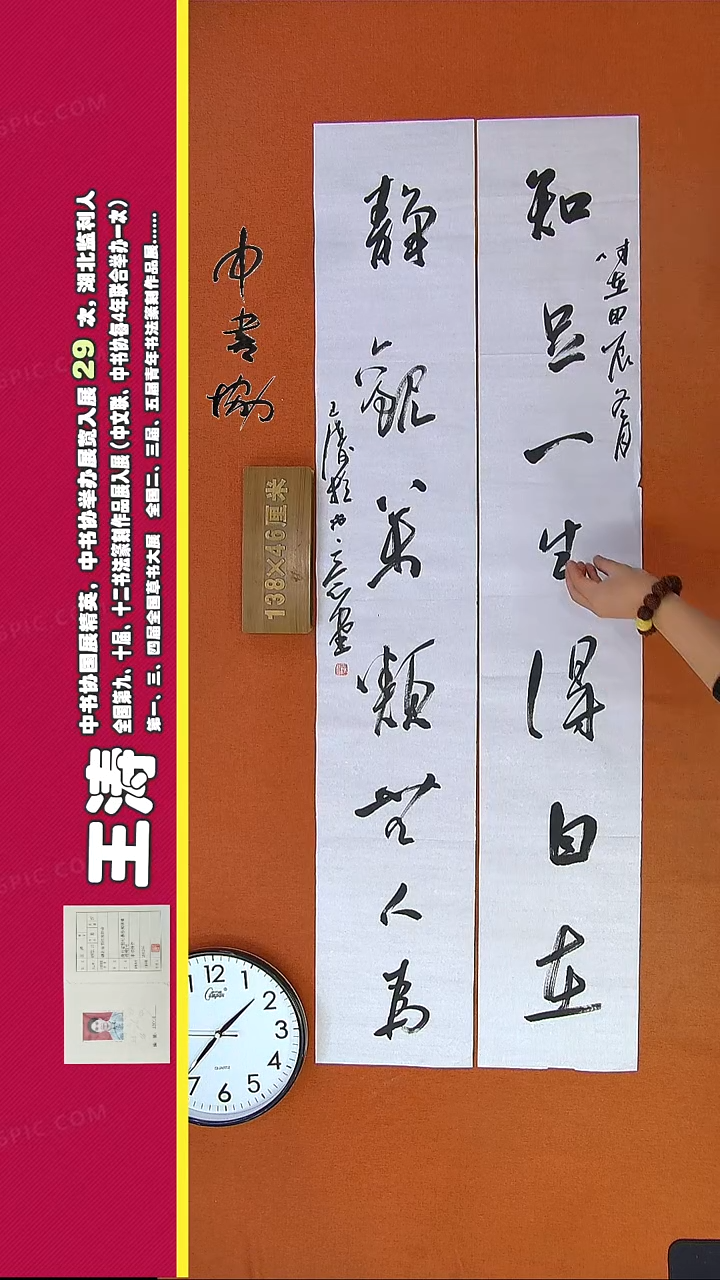 知足一生得自在
时在甲辰冬月
静观万类无人为
王涛
中书协
138×46厘米
中书协国展精英，中书协举办展览入展29次，湖北监利人
全国第九、十届、十二书法篆刻作品展入展（中文联、中书协每4年联合举办一次）
第一、三、四届全国草书大展 全国二、三届、五届青年书法篆刻作品展……
王涛
12
1
2
3
4
5
6
7